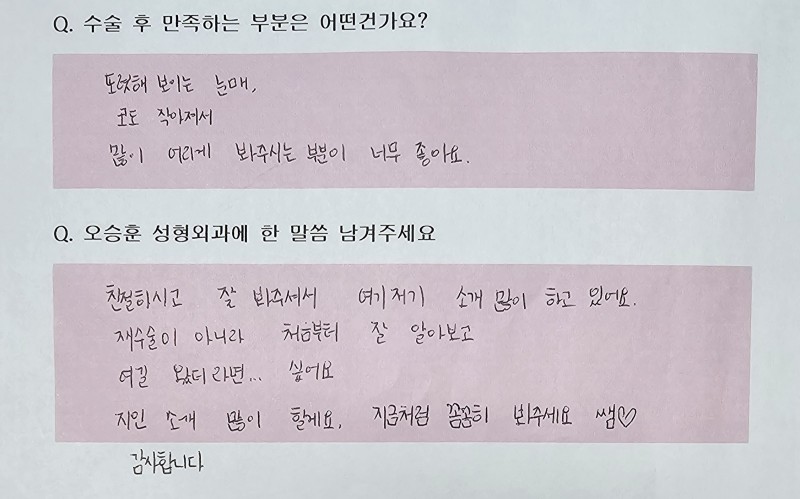 Q. 수술 후 만족하는 부분은 어떤건가요?
또렷해 보이는 눈매,
코도 작아져서
많이 어리게 봐주시는 부분이 너무 좋아요.
Q. 오승훈 성형외과에 한 말씀 남겨주세요
친절하시고 잘 봐주셔서 여기저기 소개 많이 하고 있어요.
재수술이 아니라 처음부터 잘 알아보고
여길 왔더라면... 싶어요
지인 소개 많이 할게요, 지금처럼 꼼꼼히 봐주세요 쌤♡
감사합니다